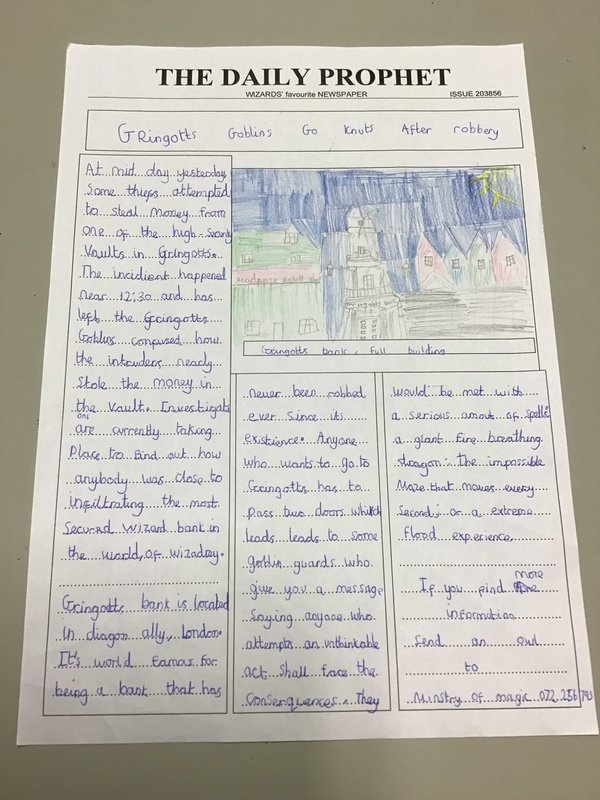 THE DAILY PROPHET
WIZARDS' favourite NEWSPAPER
ISSUE 203856
Gringotts Goblins Go Knuts After robbery
At mid day yesterday
Some thiefs attempted
to steal money from
one of the high-security
Vaults in Gringotts.
The incidient happened
near 12:30 and has
left the Gringotts
Goblins confused how
the intruders nearly
Stole the money in
the Vault. Investigati
ons
are currently taking
Place to find out how
anybody was close to
infiltrating the most
Secured wizard bank in
the world, of wizadry.
Gringotts bank is located
in diagon ally, london.
It's world famous for
being a bank that has
Gringotts bank, full building
never been robbed
ever since its
existience. Anyone
who wants to go to
Gringotts has to
Pass two doors which
leads leads to some
goblin guards who
give you a message
Saying anyone who
attempts an unthinkable
act shall face the
Consequences. They
would be met with
a serious amout of spells
a giant fire breathing
dragon. The impossible
Maze that moves every
Second; or a extreme
flood experience
more
If you find
information
Send an owl
to
Ministry of magic 072 256 793